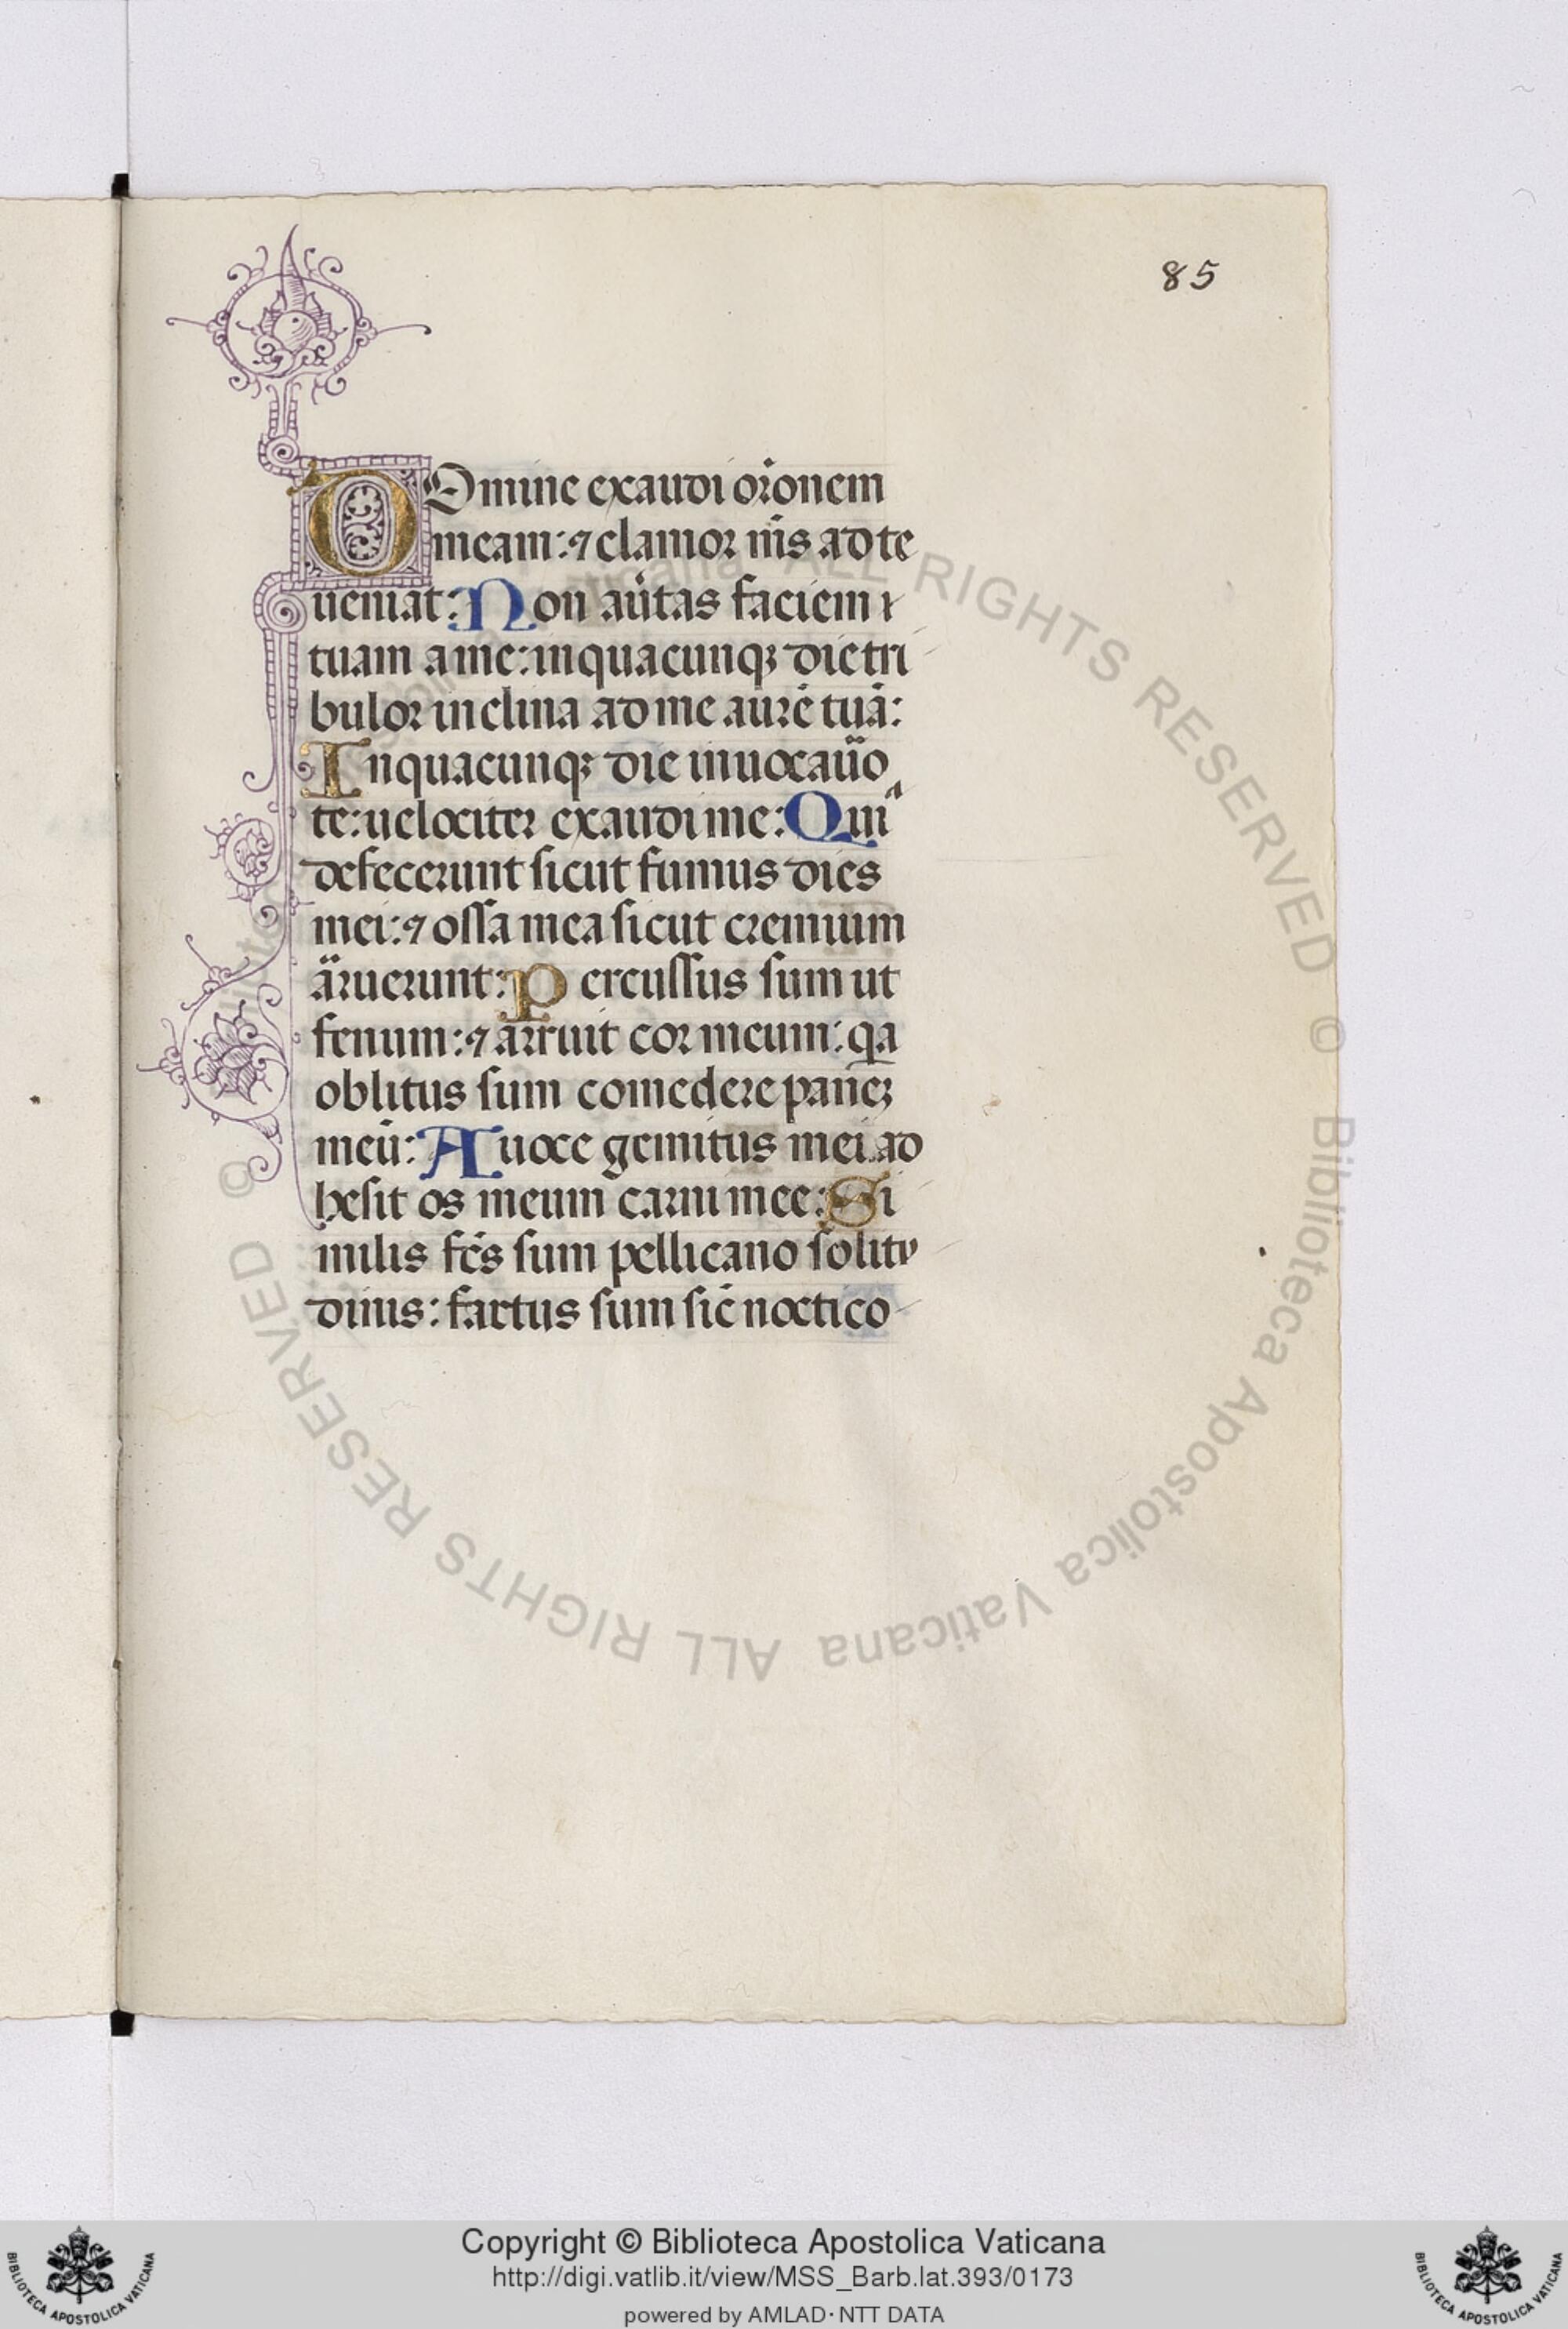 85
DOmine exaudi or̄onem
meam: ⁊ clamor m̄s ad te
ueniat: Non au̾tas faciem
tuam a me: in quacunqꝫ die tri
bulor inclina ad me aurē tuā:
In quacunqꝫ die inuocau̾o
te: uelociter exaudi me: Quiᵃ
defecerunt sicut fumus dies
mei: ⁊ ossa mea sicut cremium
aruerunt: Percussus sum ut
fenum: ⁊ arruit cor meum: qa
oblitus sum comedere paneꝫ
meū: A uoce gemitus mei ad
hesit os meum carni mee: Si
milis fc̄s sum pellicano solitu
dinis: factus sum sic̄ noctico
© Biblioteca Apostolica Vaticana ALL RIGHTS RESERVED
© Biblioteca Apostolica Vaticana ALL RIGHTS RESERVED
BIBLIOTECA APOSTOLICA VATICANA
Copyright © Biblioteca Apostolica Vaticana
http://digi.vatlib.it/view/MSS_Barb.lat.393/0173
powered by AMLAD · NTT DATA
BIBLIOTECA APOSTOLICA VATICANA